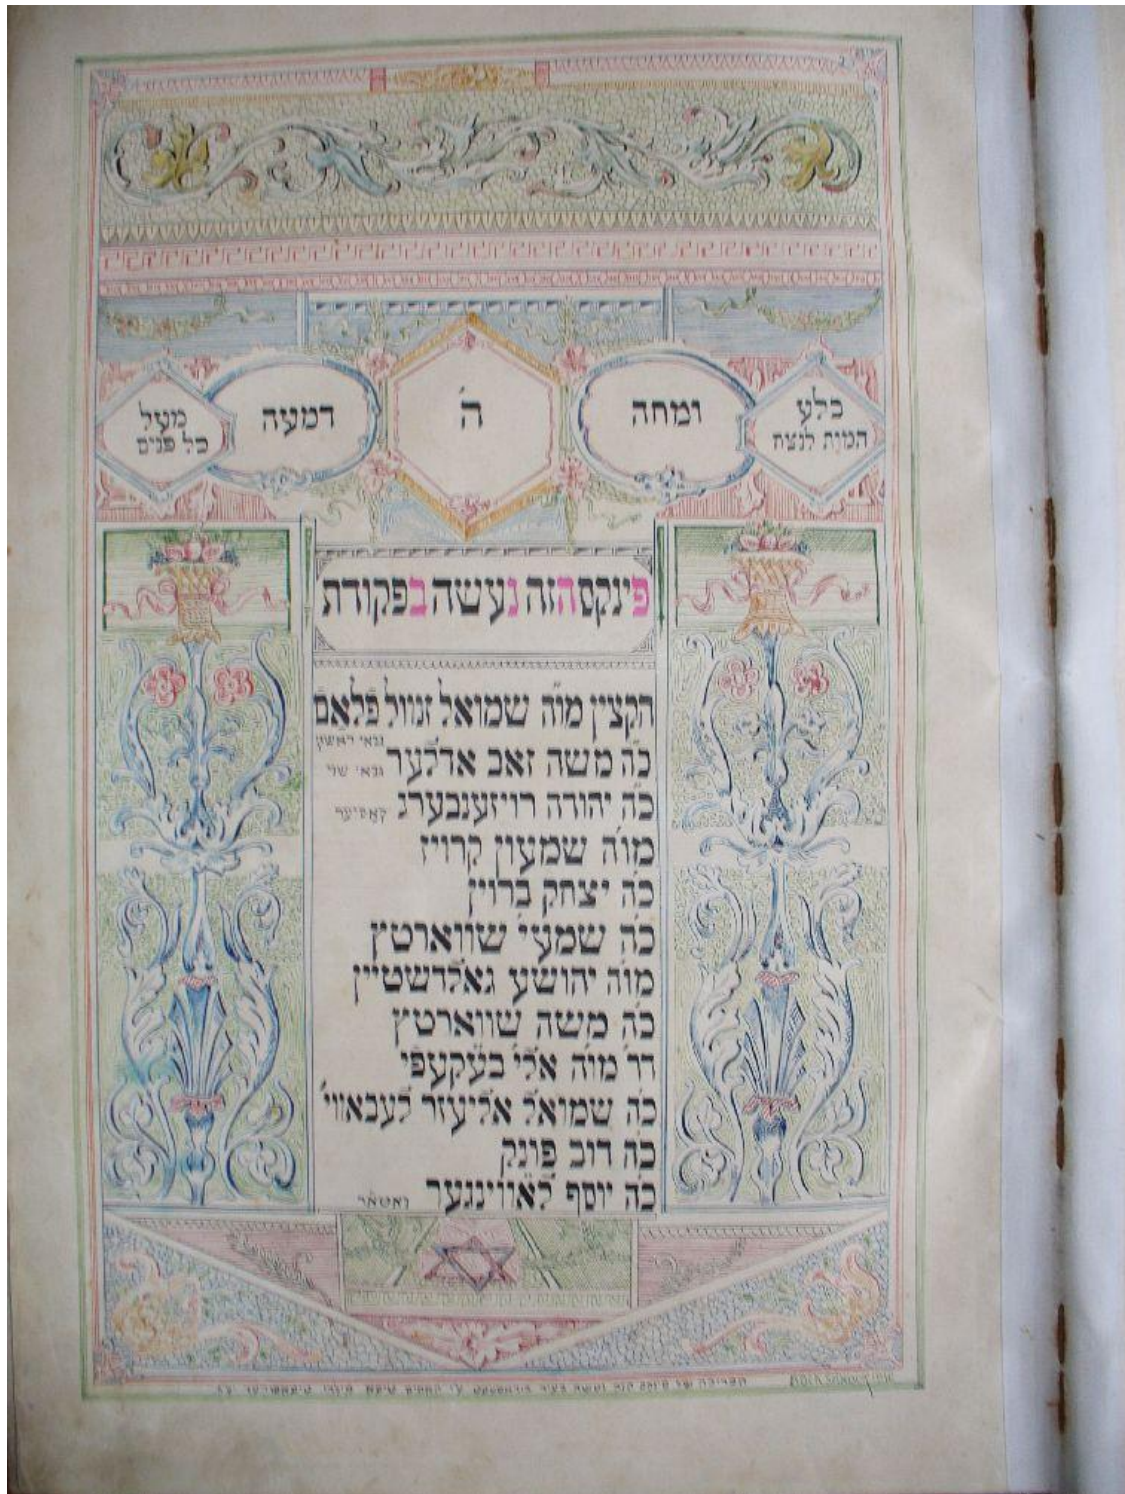 בלע
המות לנצח
ומחה
ה'
דמעה
מעל
כל פנים
פינקס הזה נעשה בפקודת
הקצין מו"ה שמואל זנוויל פלאם
גבאי ראשון
כ"ה משה זאב אדלער גבאי שני
כ"ה יהודה רויזענבערג קאסיער
מו"ה שמעון קרויז
כ"ה יצחק ברוין
כ"ה שמעי' שווארטץ
מו"ה יהושע גאלדשטיין
כ"ה משה שווארטץ
דר' מו"ה אלי' בעקעפי
כ"ה שמואל אליעזר לעבאווי'
כ"ה דוב פונק
כ"ה יוסף לאווינגער